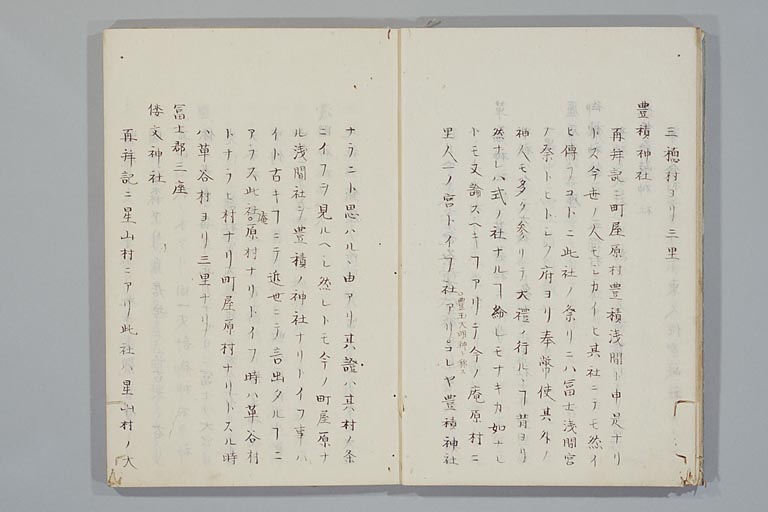 三穂村ヨリ三里
豊積神社
再考記ニ町屋原村豊積浅間ト申是ナリ
トス今世ノ人モシカイヒ其社ニテモ然イ
ヒ傳フコトニ此社ノ祭リニハ冨士浅間宮
ノ祭トヒトシク府ヨリ奉幣使其外ノ
神人モ多ク参リテ大禮ノ行ルヿ昔ヨリ
然ナレハ式ノ社ナルヿ紛レモナキカ如ナレ
トモ又論スヘキヿアリテ今ノ庵原村ニ
里人一ノ宮トイフ社アリ豊玉大明神ト称スコレヤ豊積神社
ナラニト思ハル由アリ其證ハ其村ノ条
ニイフヲ見ルヘシ然レトモ今ノ町屋原ナ
ル浅間社ヲ豊積ノ神社ナリトイフ事ハ
イト古キヿニテ近世ニテ言出タルヿニ
アラス此社庵原村ナリトイフ時ハ草谷村
トナラヒ村ナリ町屋原村ナリトスル時
ハ草谷村ヨリ三里ナリ
冨士郡三座
倭文神社
再考記ニ星山村ニアリ此社星山村ノ大